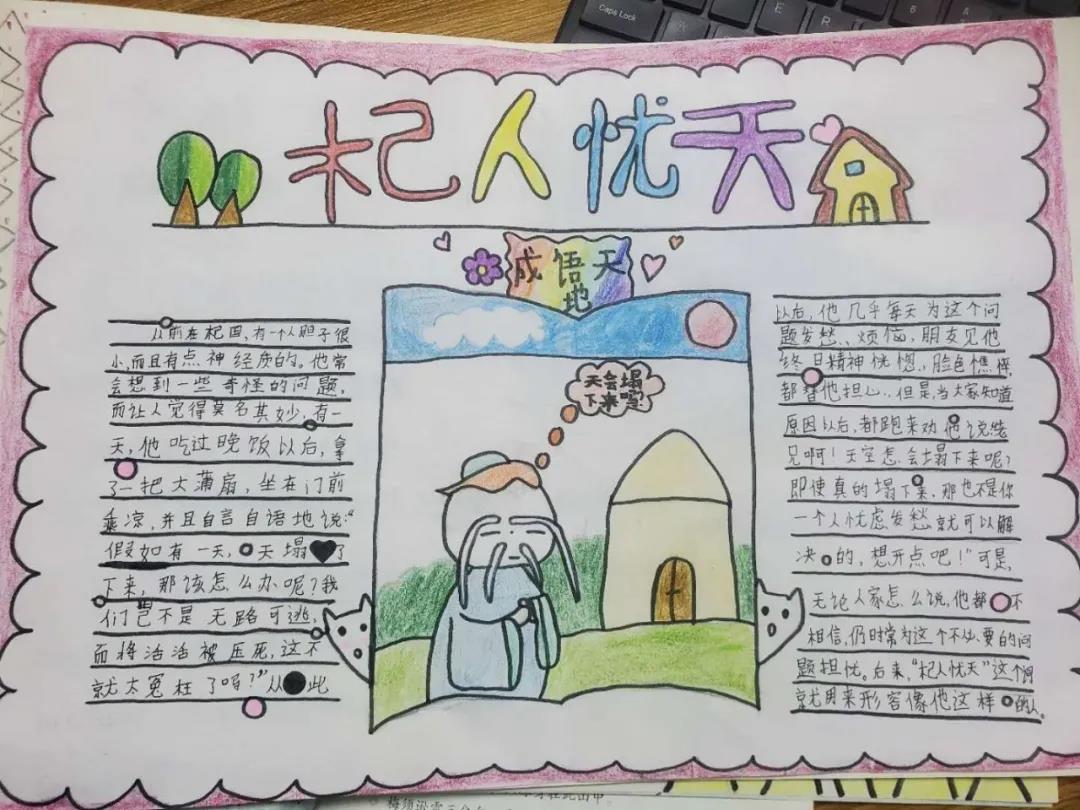 杞人忧天
成语天地
天会塌
下来吗
从前在杞国,有一个人胆子很
小,而且有点神经质的。他常
会想到一些奇怪的问题,
而让人觉得莫名其妙,有一
天,他吃过晚饭以后,拿
了一把大蒲扇,坐在门前
乘凉,并且自言自语地说:“
假如有一天,天塌了
下来,那该怎么办呢?我
们岂不是无路可逃,
而将活活被压死,这不
就太冤枉了吗?”从此
以后,他几乎每天为这个问
题发愁、烦恼,朋友见他
终日精神恍惚,脸色憔悴,
都替他担心,但是,当大家知道
原因以后,都跑来劝他说:
兄啊!天空怎会塌下来呢?
即使真的塌下来,那也不是你
一个人忧虑发愁就可以解
决的,想开点吧!”可是,
无论人家怎么说,他都不
相信,仍时常为这个不必要的问
题担忧。后来,“杞人忧天”这个词
就用来形容像他这样的人。
Caps Lock
E
R
6
A